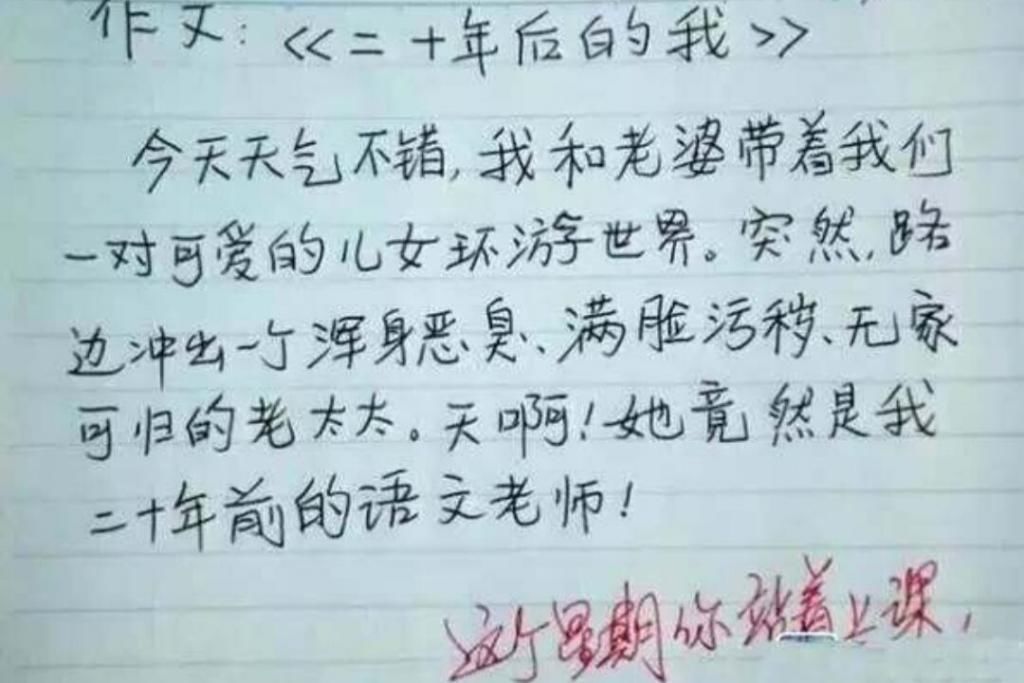 作文:《二十年后的我》
今天天气不错,我和老婆带着我们
一对可爱的儿女环游世界。突然,路
边冲出一个浑身恶臭、满脸污秽、无家
可归的老太太。天啊!她竟然是我
二十年前的语文老师!
这个星期你站着上课,